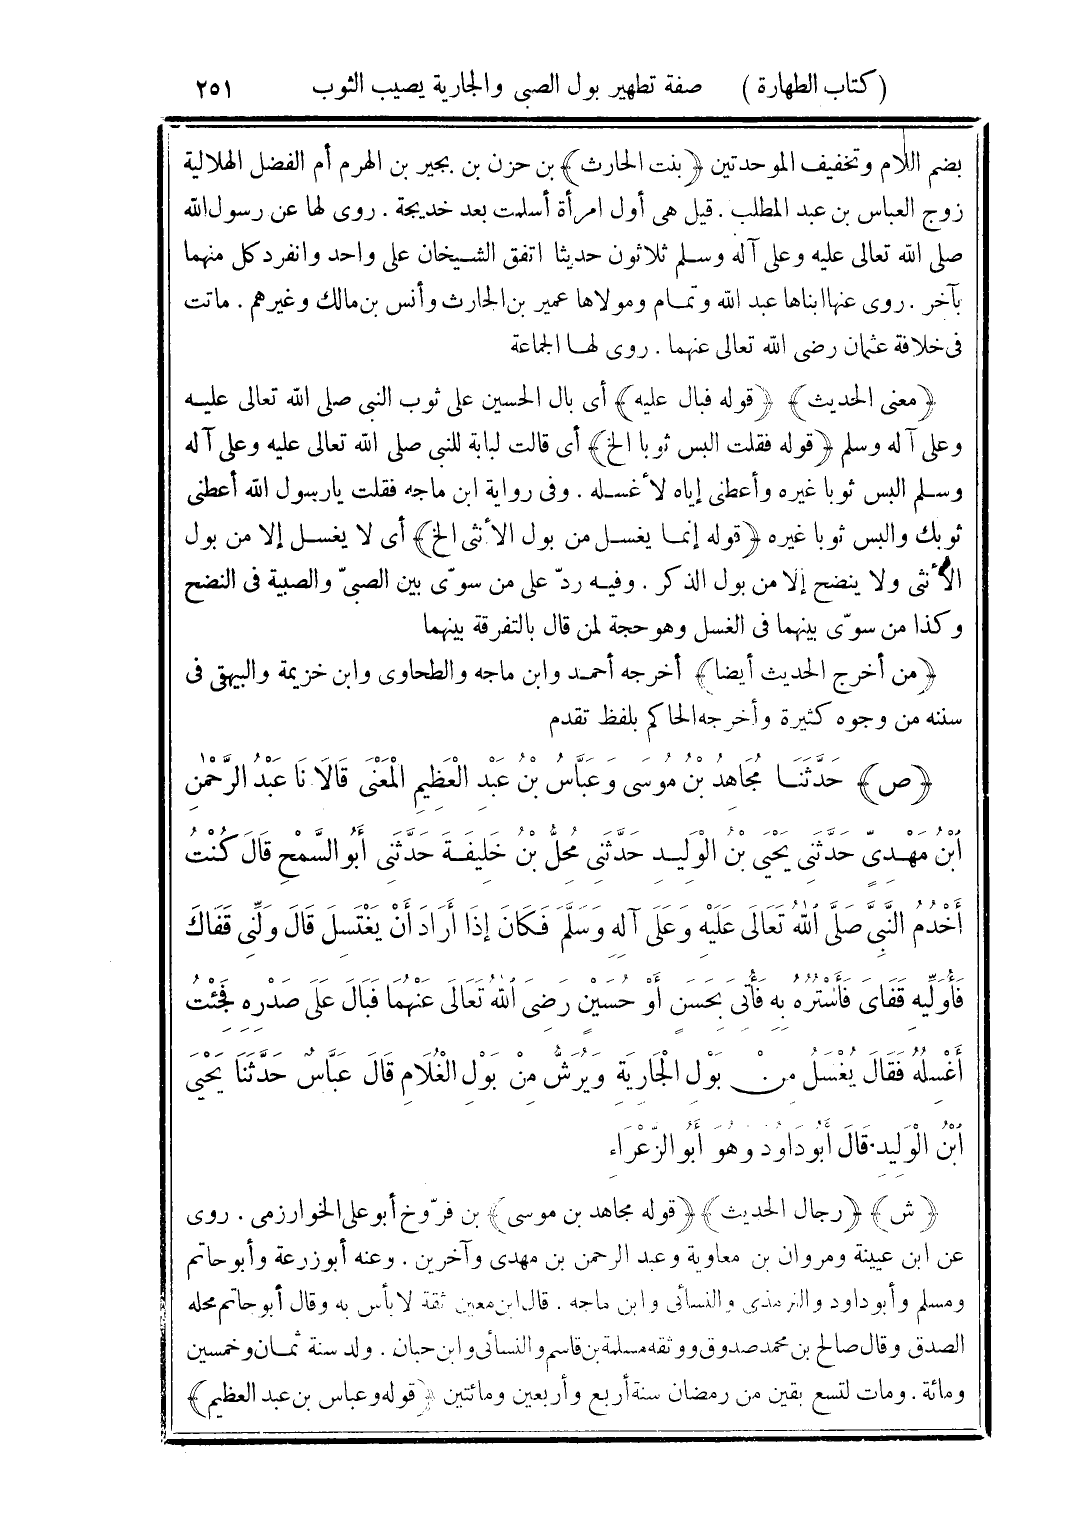 (كتاب الطهارة) صفة تطهير بول الصبى والجارية يصيب الثوب ٢٥١
بضم اللام وتخفيف الموحدتين ﴿بنت الحارث﴾ بن حزن بن بجير بن الهرم أم الفضل الهلالية
زوج العباس بن عبد المطلب . قيل هى أول امرأة أسلمت بعد خديجة . روى لها عن رسول الله
صلى الله تعالى عليه وعلى آله وسلم ثلاثون حديثا اتفق الشيخان على واحد وانفرد كل منهما
بآخر . روى عنها ابناها عبد الله وتمام ومولاها عمير بن الحارث وأنس بن مالك وغيرهم . ماتت
فى خلافة عثمان رضى الله تعالى عنهما . روى لها الجماعة
﴿معنى الحديث﴾ ﴿قوله فبال عليه﴾ أى بال الحسين على ثوب النبى صلى الله تعالى عليه
وعلى آله وسلم ﴿قوله فقلت البس ثوبا الخ﴾ أى قالت لبابة للنبى صلى الله تعالى عليه وعلى آله
وسلم البس ثوبا غيره وأعطنى إياه لأغسله . وفى رواية ابن ماجه فقلت يارسول الله أعطنى
ثوبك والبس ثوبا غيره ﴿قوله إنما يغسل من بول الأنثى الخ﴾ أى لا يغسل إلا من بول
الأنثى ولا ينضح إلا من بول الذكر . وفيه ردّ على من سوّى بين الصبىّ والصبية فى النضح
وكذا من سوّى بينهما فى الغسل وهو حجة لمن قال بالتفرقة بينهما
﴿من أخرج الحديث أيضا﴾ أخرجه أحمد وابن ماجه والطحاوى وابن خزيمة والبيهقى فى
سننه من وجوه كثيرة وأخرجه الحاكم بلفظ تقدم
﴿ص﴾ حَدَّثَنَا مُجَاهِدُ بْنُ مُوسَى وَعَبَّاسُ بْنُ عَبْدِ الْعَظِيمِ الْمَعْنَى قَالَا نَا عَبْدُ الرَّحْمٰنِ
ابْنُ مَهْدِىٍّ حَدَّثَنِى يَحْيَى بْنُ الْوَلِيدِ حَدَّثَنِى مُحِلُّ بْنُ خَلِيفَةَ حَدَّثَنِى أَبُو السَّمْحِ قَالَ كُنْتُ
أَخْدُمُ النَّبِىَّ صَلَّى اللهُ تَعَالَى عَلَيْهِ وَعَلَى آلِهِ وَسَلَّمَ فَكَانَ إِذَا أَرَادَ أَنْ يَغْتَسِلَ قَالَ وَلِّنِى قَفَاكَ
فَأُوَلِّيهِ قَفَاىَ فَأَسْتُرُهُ بِهِ فَأُتِىَ بِحَسَنٍ أَوْ حُسَيْنٍ رَضِىَ اللهُ تَعَالَى عَنْهُمَا فَبَالَ عَلَى صَدْرِهِ فَجِئْتُ
أَغْسِلُهُ فَقَالَ يُغْسَلُ مِنْ بَوْلِ الْجَارِيَةِ وَيُرَشُّ مِنْ بَوْلِ الْغُلَامِ قَالَ عَبَّاسٌ حَدَّثَنَا يَحْيَى
ابْنُ الْوَلِيدِ . قَالَ أَبُو دَاوُدَ وَهُوَ أَبُو الزَّعْرَاءِ
﴿ش﴾ ﴿رجال الحديث﴾ ﴿قوله مجاهد بن موسى﴾ بن فرّوخ أبو على الخوارزمى . روى
عن ابن عيينة ومروان بن معاوية وعبد الرحمن بن مهدى وآخرين . وعنه أبو زرعة وأبو حاتم
ومسلم وأبو داود والترمذى والنسائى وابن ماجه . قال ابن معين ثقة لابأس به وقال أبو حاتم محله
الصدق وقال صالح بن محمد صدوق ووثقه مسلمة بن قاسم والنسائى وابن حبان . ولد سنة ثمان وخمسين
ومائة . ومات لتسع بقين من رمضان سنة أربع وأربعين ومائتين ﴿قوله وعباس بن عبد العظيم﴾